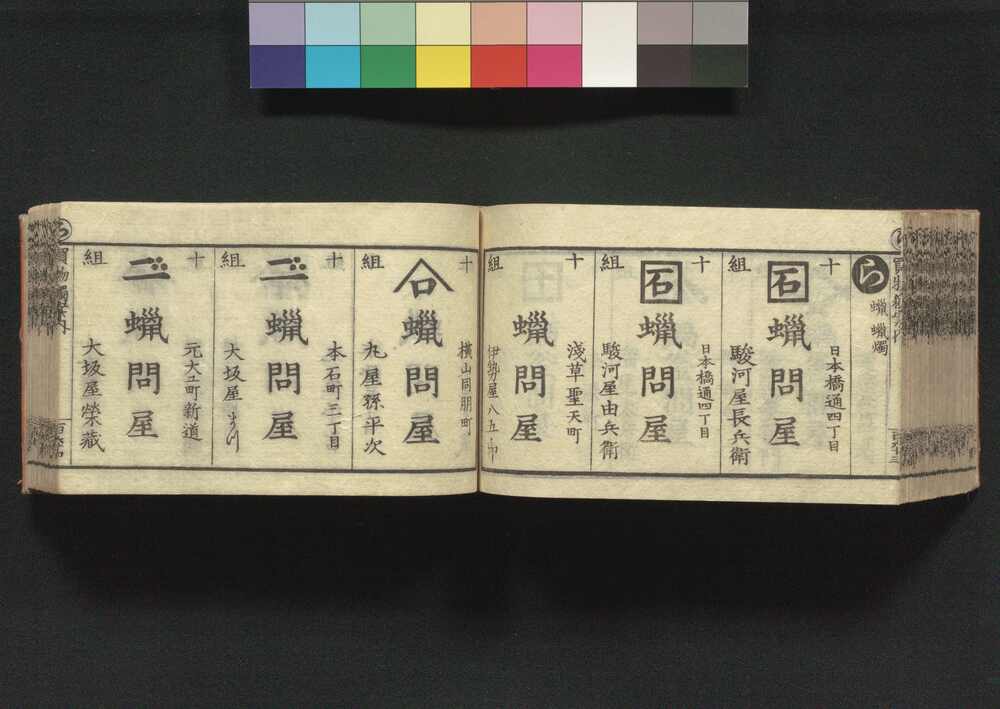 ら
蠟 蠟燭
十
組
石
蠟問屋
日本橋通四丁目
駿河屋長兵衛
十
組
石
蠟問屋
日本橋通四丁目
駿河屋由兵衛
十
組
蠟問屋
淺草聖天町
伊勢屋八五郎
十
組
蠟問屋
橫山同朋町
丸屋孫平次
十
組
蠟問屋
本石町三丁目
大坂屋まつ
十
組
蠟問屋
元大工町新道
大坂屋榮藏
ら